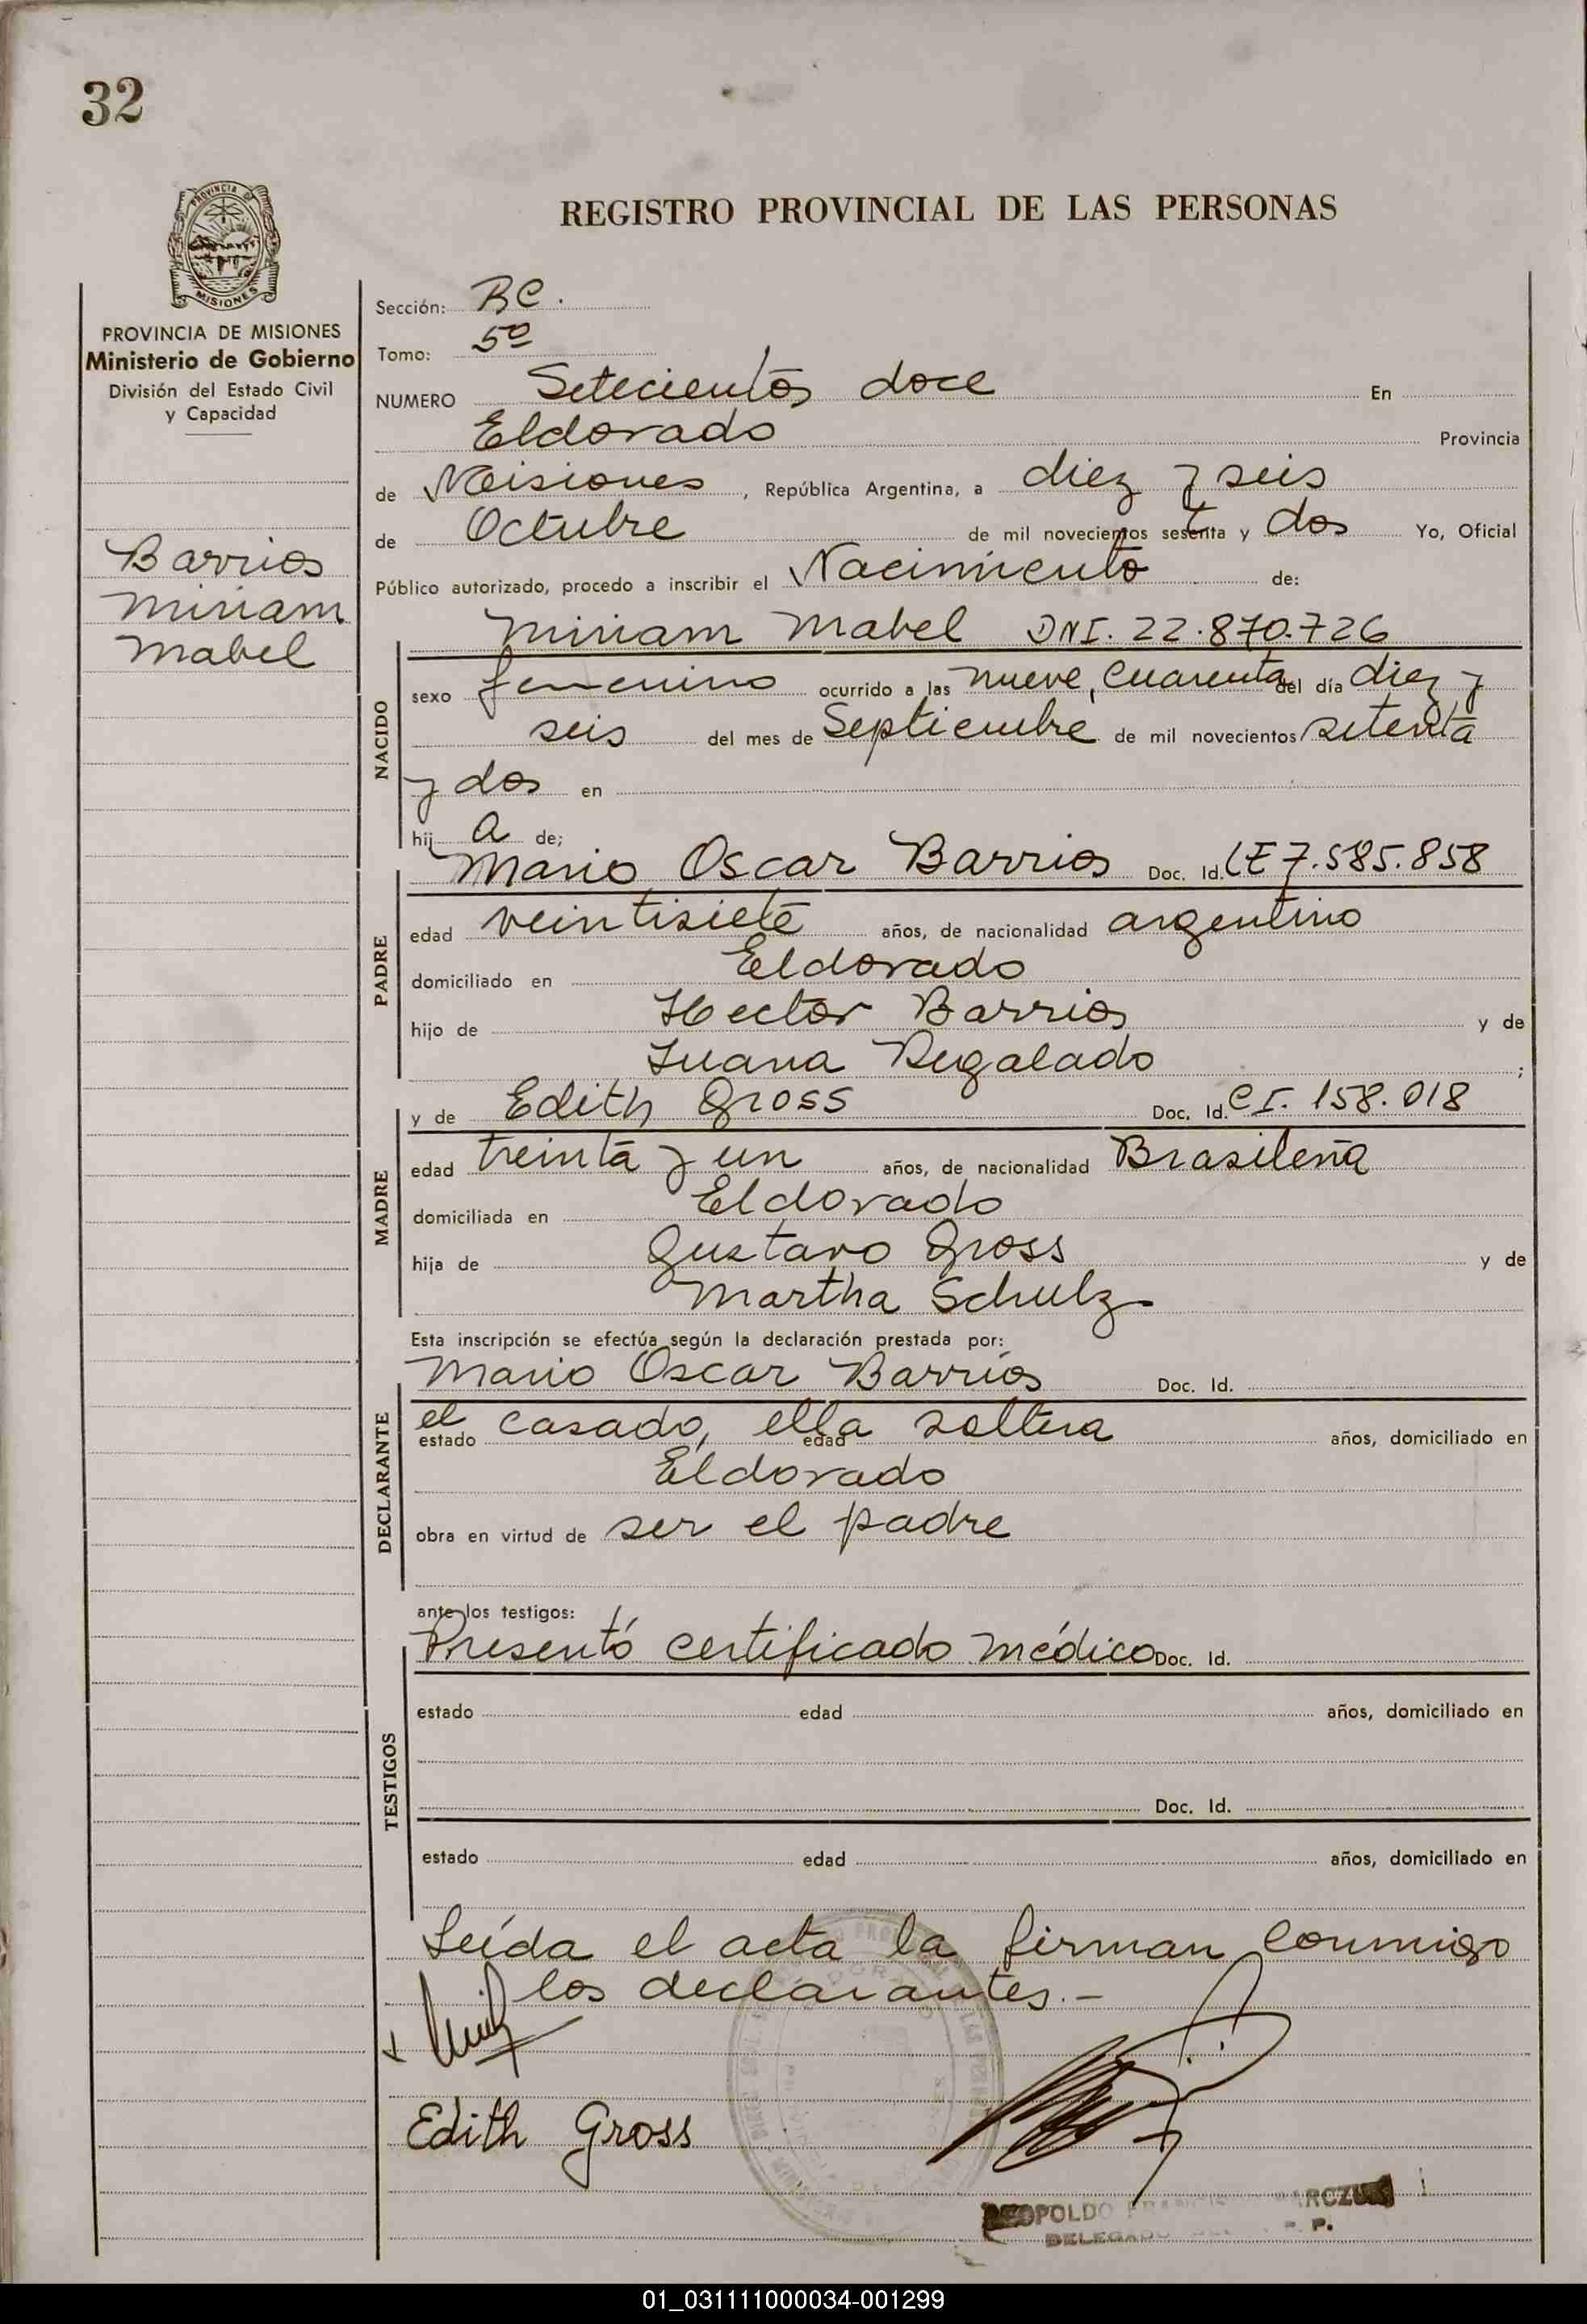 32
PROVINCIA DE
MISIONES
REGISTRO PROVINCIAL DE LAS PERSONAS
PROVINCIA DE MISIONES
Ministerio de Gobierno
División del Estado Civil
y Capacidad
Barrios
Miriam
Mabel
Sección: BC.
Tomo: 5º
NUMERO Setecientos doce En
Eldorado Provincia
de Misiones, República Argentina, a diez y seis
de Octubre de mil novecientos setenta y dos Yo, Oficial
Público autorizado, procedo a inscribir el Nacimiento de:
NACIDO
Miriam Mabel DNI. 22.870.726
sexo femenino ocurrido a las nueve, cuarenta del día diez y
seis del mes de Septiembre de mil novecientos setenta
y dos en
hij a de;
PADRE
Mario Oscar Barrios Doc. Id. LE 7.585.858
edad veintisiete años, de nacionalidad argentino
domiciliado en Eldorado
hijo de Hector Barrios y de
Juana Regalado ;
MADRE
y de Edith Gross Doc. Id. CI. 158.018
edad treinta y un años, de nacionalidad Brasileña
domiciliada en Eldorado
hija de Gustavo Gross y de
Martha Schulz
Esta inscripción se efectúa según la declaración prestada por:
DECLARANTE
Mario Oscar Barrios Doc. Id.
el estado casado, ella edad soltera años, domiciliado en
Eldorado
obra en virtud de ser el padre
ante los testigos:
TESTIGOS
Presentó certificado médico Doc. Id.
estado edad años, domiciliado en
Doc. Id.
estado edad años, domiciliado en
Leída el acta la firman conmigo
los declarantes.-
Edith Gross
LEOPOLDO
DELEGADO
01_031111000034-001299